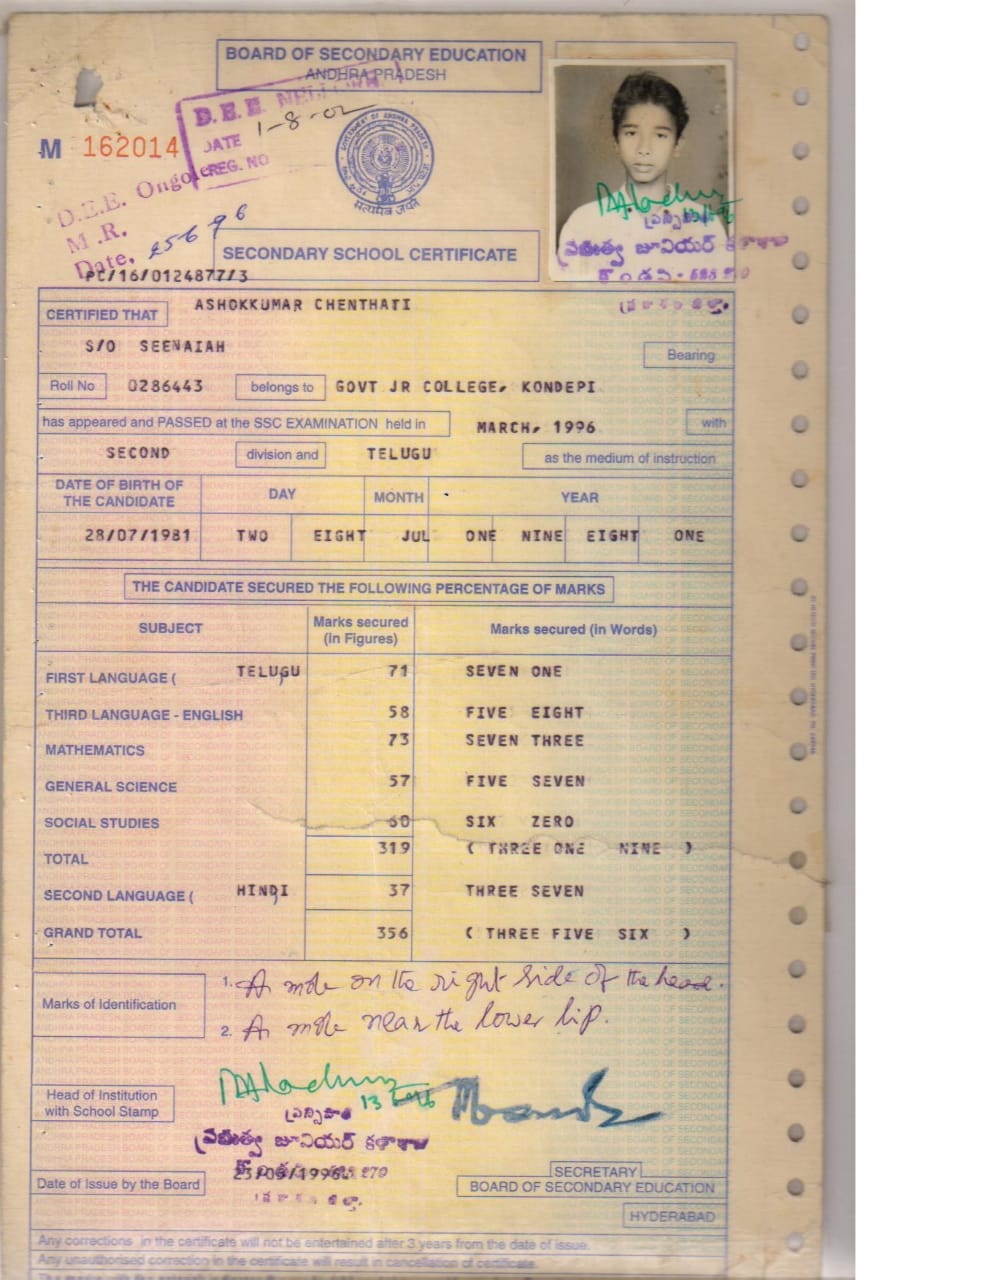 BOARD OF SECONDARY EDUCATION
ANDHRA PRADESH
D.E.E. NELLORE
DATE 1-8-02
REG. NO
M 162014
D.E.E. Ongole
M.R.
Date. 25 6 96
सत्यमेव जयते
SECONDARY SCHOOL CERTIFICATE
PC/16/0124877/3
జూనియర్
CERTIFIED THAT ASHOKKUMAR CHENTHATI
S/O SEENAIAH
Bearing
Roll No 0286443 belongs to GOVT JR COLLEGE, KONDEPI
has appeared and PASSED at the SSC EXAMINATION held in MARCH, 1996 with
SECOND division and TELUGU as the medium of instruction
DATE OF BIRTH OF THE CANDIDATE DAY MONTH YEAR
28/07/1981 TWO EIGHT JUL ONE NINE EIGHT ONE
THE CANDIDATE SECURED THE FOLLOWING PERCENTAGE OF MARKS
SUBJECT Marks secured (in Figures) Marks secured (in Words)
FIRST LANGUAGE ( TELUGU 71 SEVEN ONE
THIRD LANGUAGE - ENGLISH 58 FIVE EIGHT
MATHEMATICS 73 SEVEN THREE
GENERAL SCIENCE 57 FIVE SEVEN
SOCIAL STUDIES 60 SIX ZERO
TOTAL 319 ( THREE ONE NINE )
SECOND LANGUAGE ( HINDI 37 THREE SEVEN
GRAND TOTAL 356 ( THREE FIVE SIX )
Marks of Identification
1. A mole on the right side of the head.
2. A mole near the lower lip.
Head of Institution with School Stamp
జూనియర్
Date of Issue by the Board
SECRETARY
BOARD OF SECONDARY EDUCATION
HYDERABAD
Any corrections in the certificate will not be entertained after 3 years from the date of issue.
Any unauthorised correction in the certificate will result in cancellation of certificate.